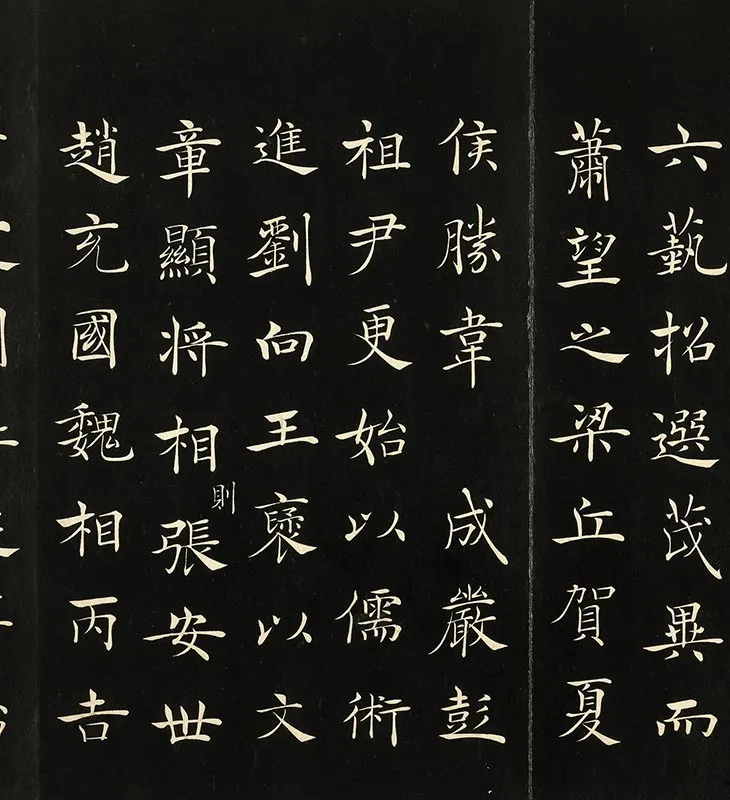 六藝招選茂異而
蕭望之梁丘賀夏
侯勝韋 成嚴彭
祖尹更始以儒術
進劉向王襃以文
章顯將相則張安世
趙充國魏相丙吉